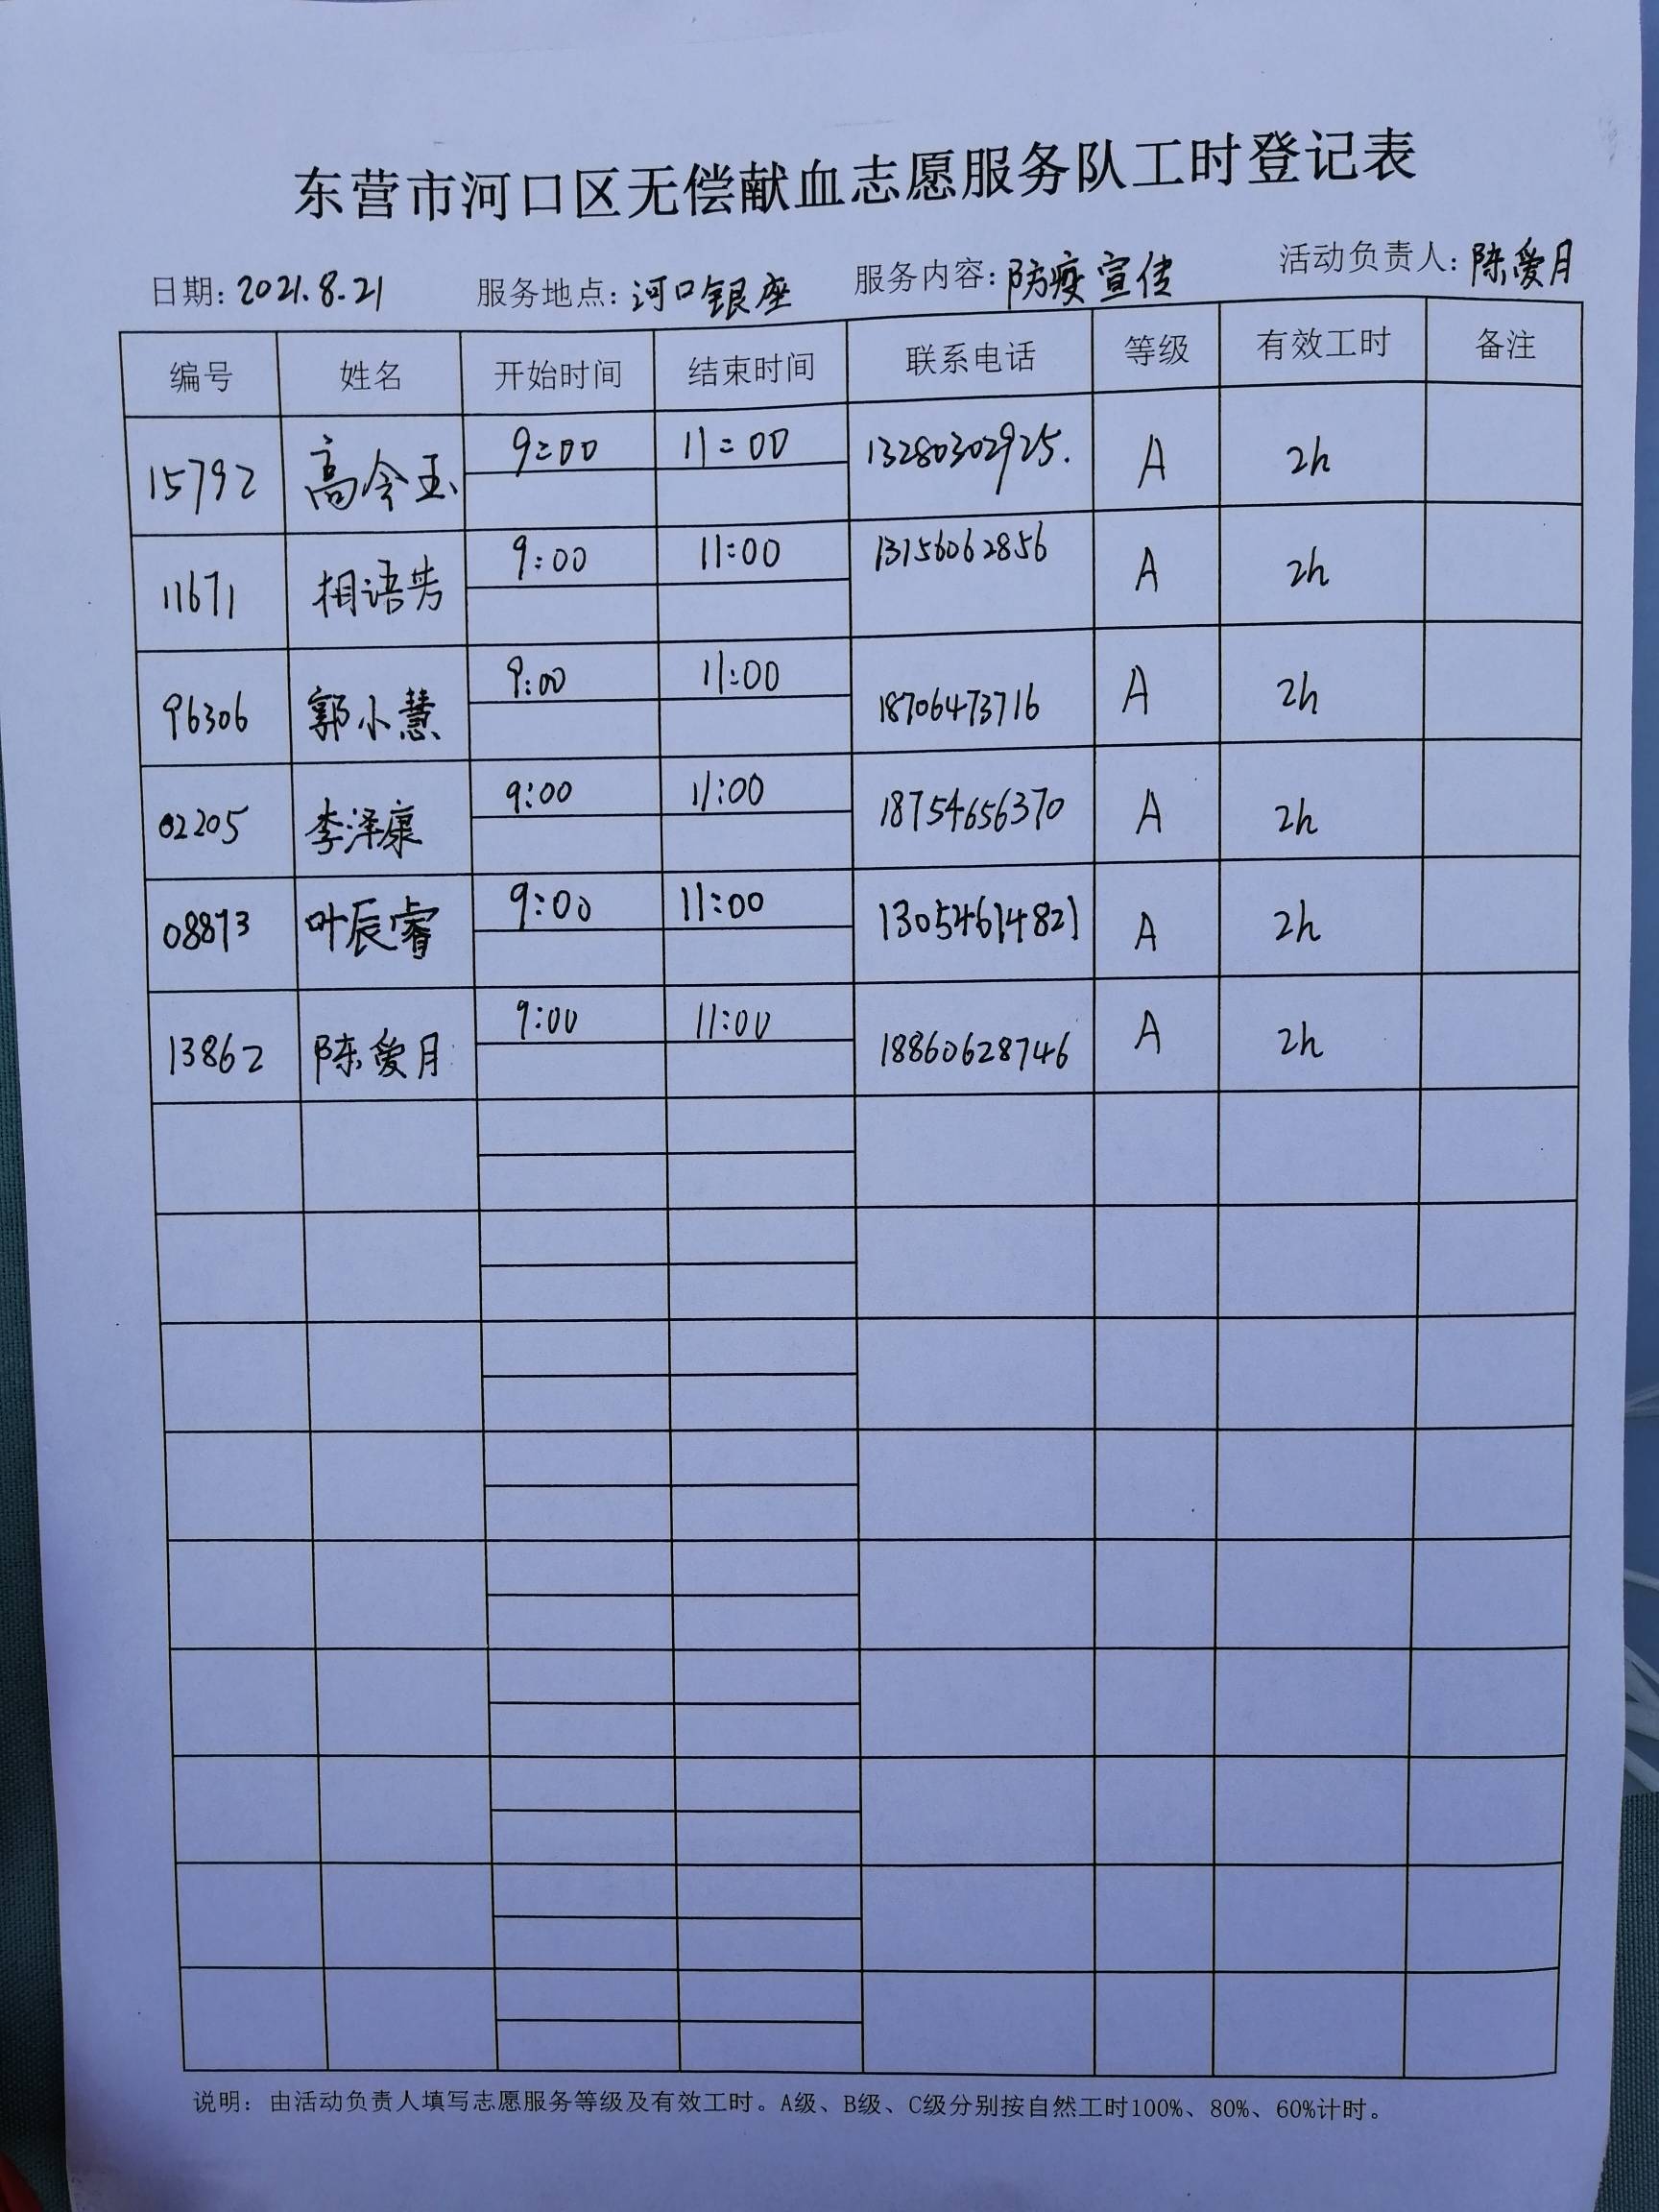 东营市河口区无偿献血志愿服务队工时登记表
日期: 2021.8.21 服务地点: 河口银座 服务内容: 防疫宣传 活动负责人: 陈爱月
编号 姓名 开始时间 结束时间 联系电话 等级 有效工时 备注
15792 高令玉 9:00 11:00 13280302925. A 2h
11671 相语芳 9:00 11:00 13156062856 A 2h
96306 郭小慧 9:00 11:00 18706473716 A 2h
02205 李泽康 9:00 11:00 18754656370 A 2h
08873 叶辰睿 9:00 11:00 13054614821 A 2h
13862 陈爱月 9:00 11:00 18860628746 A 2h
说明：由活动负责人填写志愿服务等级及有效工时。A级、B级、C级分别按自然工时100%、80%、60%计时。